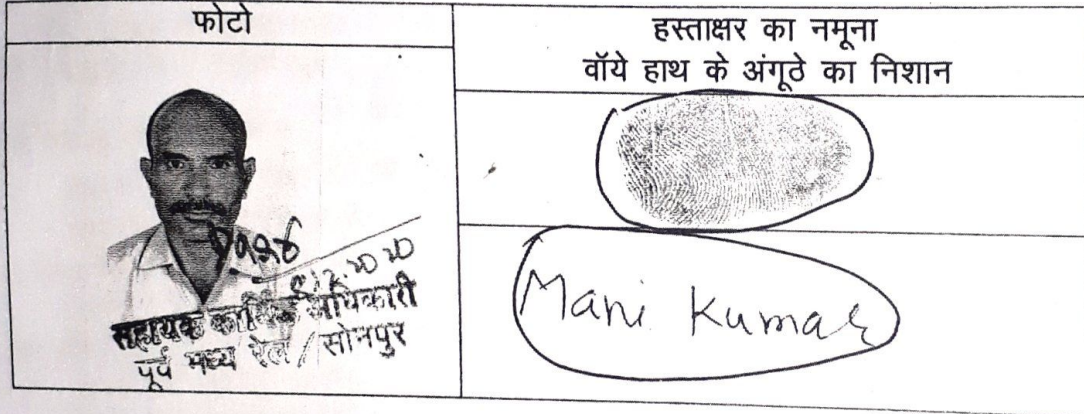 फोटो
हस्ताक्षर का नमूना
वॉये हाथ के अंगूठे का निशान
सहायक कार्मिक अधिकारी
पूर्व मध्य रेल / सोनपुर
Mani Kumar